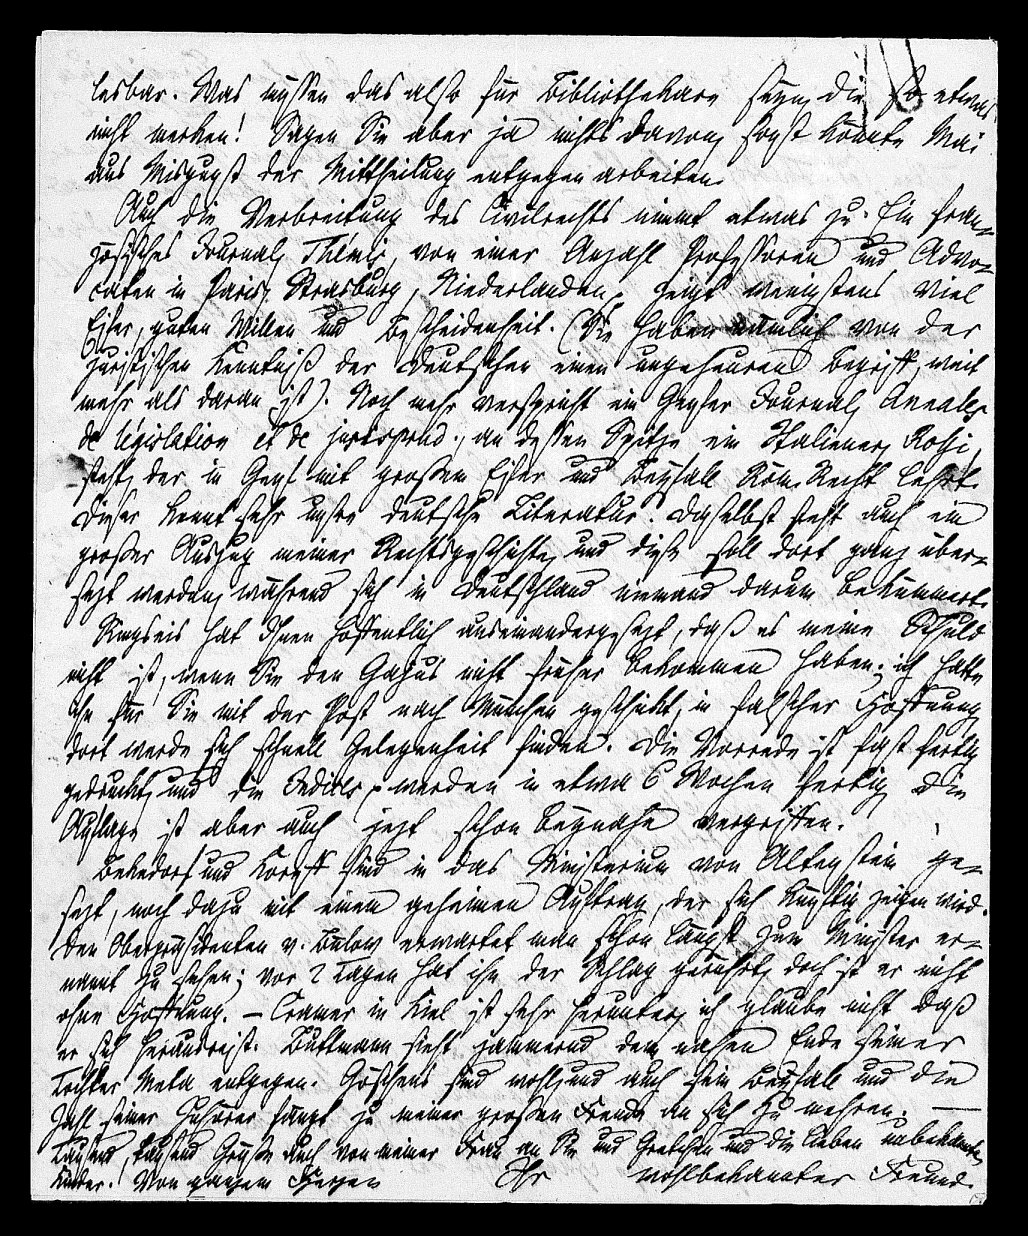 lesbar. Was müssen das also für Bibliothekare seyn, die so etwas
nicht merken! Sagen Sie aber ja nichts davon, sonst könnte Mai
aus Misgunst der Mittheilung entgegen arbeiten.
Auch die Verbreitung des Civilrechts nimmt etwas zu. Ein fran-
zösisches Journal, Thémis, von einer Anzahl Professoren und Advo-
caten in Paris, Strasburg, Niederlanden, zeigt wenigstens viel
Eifer, guten Willen und Bescheidenheit. (Sie haben nämlich von der
juristischen Kenntniß der Deutschen einen ungeheuren Begriff, weit
mehr als daran ist). Noch mehr verspricht ein Genfer Journal, Annales
de législation et de jurisprud., an dessen Spitze ein Italiener, Rossi,
steht, der in Genf mit großem Eifer und Beyfall Röm. Recht lehrt.
Dieser kennt sehr unsre deutsche Literatur. Daselbst steht auch ein
großer Auszug meiner Rechtsgeschichte, und diese soll dort ganz über-
sezt werden, während sich in Deutschland niemand darum bekümmert.
Ringseis hat Ihnen hoffentlich auseinandergesezt, daß es meine Schuld
nicht ist, wenn Sie den Gajus nicht früher bekommen haben; ich hatte
ihn für Sie mit der Post nach München geschickt, in falscher Hoffnung,
dort werde sich schnell Gelegenheit finden. Die Vorrede ist fast fertig
gedruckt, und die Indices werden in etwa 6 Wochen fertig, die
Auflage ist aber auch jezt schon beynahe vergriffen.
Bekedorf und Koreff sind in das Ministerium von Altenstein ge-
sezt, noch dazu mit einem geheimen Auftrag, der sich künftig zeigen wird.
Den Oberpräsidenten v. Bülow erwartet man schon längst zum Minister er-
nannt zu sehen; vor 2 Tagen hat ihn der Schlag gerührt, doch ist er nicht
ohne Hoffnung. – Cramer in Kiel ist sehr herunter, ich glaube nicht daß
er sich herausreist. Buttmann sieht jammernd dem nahen Ende seiner
Tochter Meta entgegen. Göschens sind wohl, und auch sein Beyfall und die
Zahl seiner Zuhörer fängt zu meiner großen Freude an sich zu mehren. —
Tausend, tausend Grüße auch von meiner Frau an Sie und Gretchen und die lieben unbekannten
Kinder. Von ganzem Herzen Ihr wohlbekannter Freund.